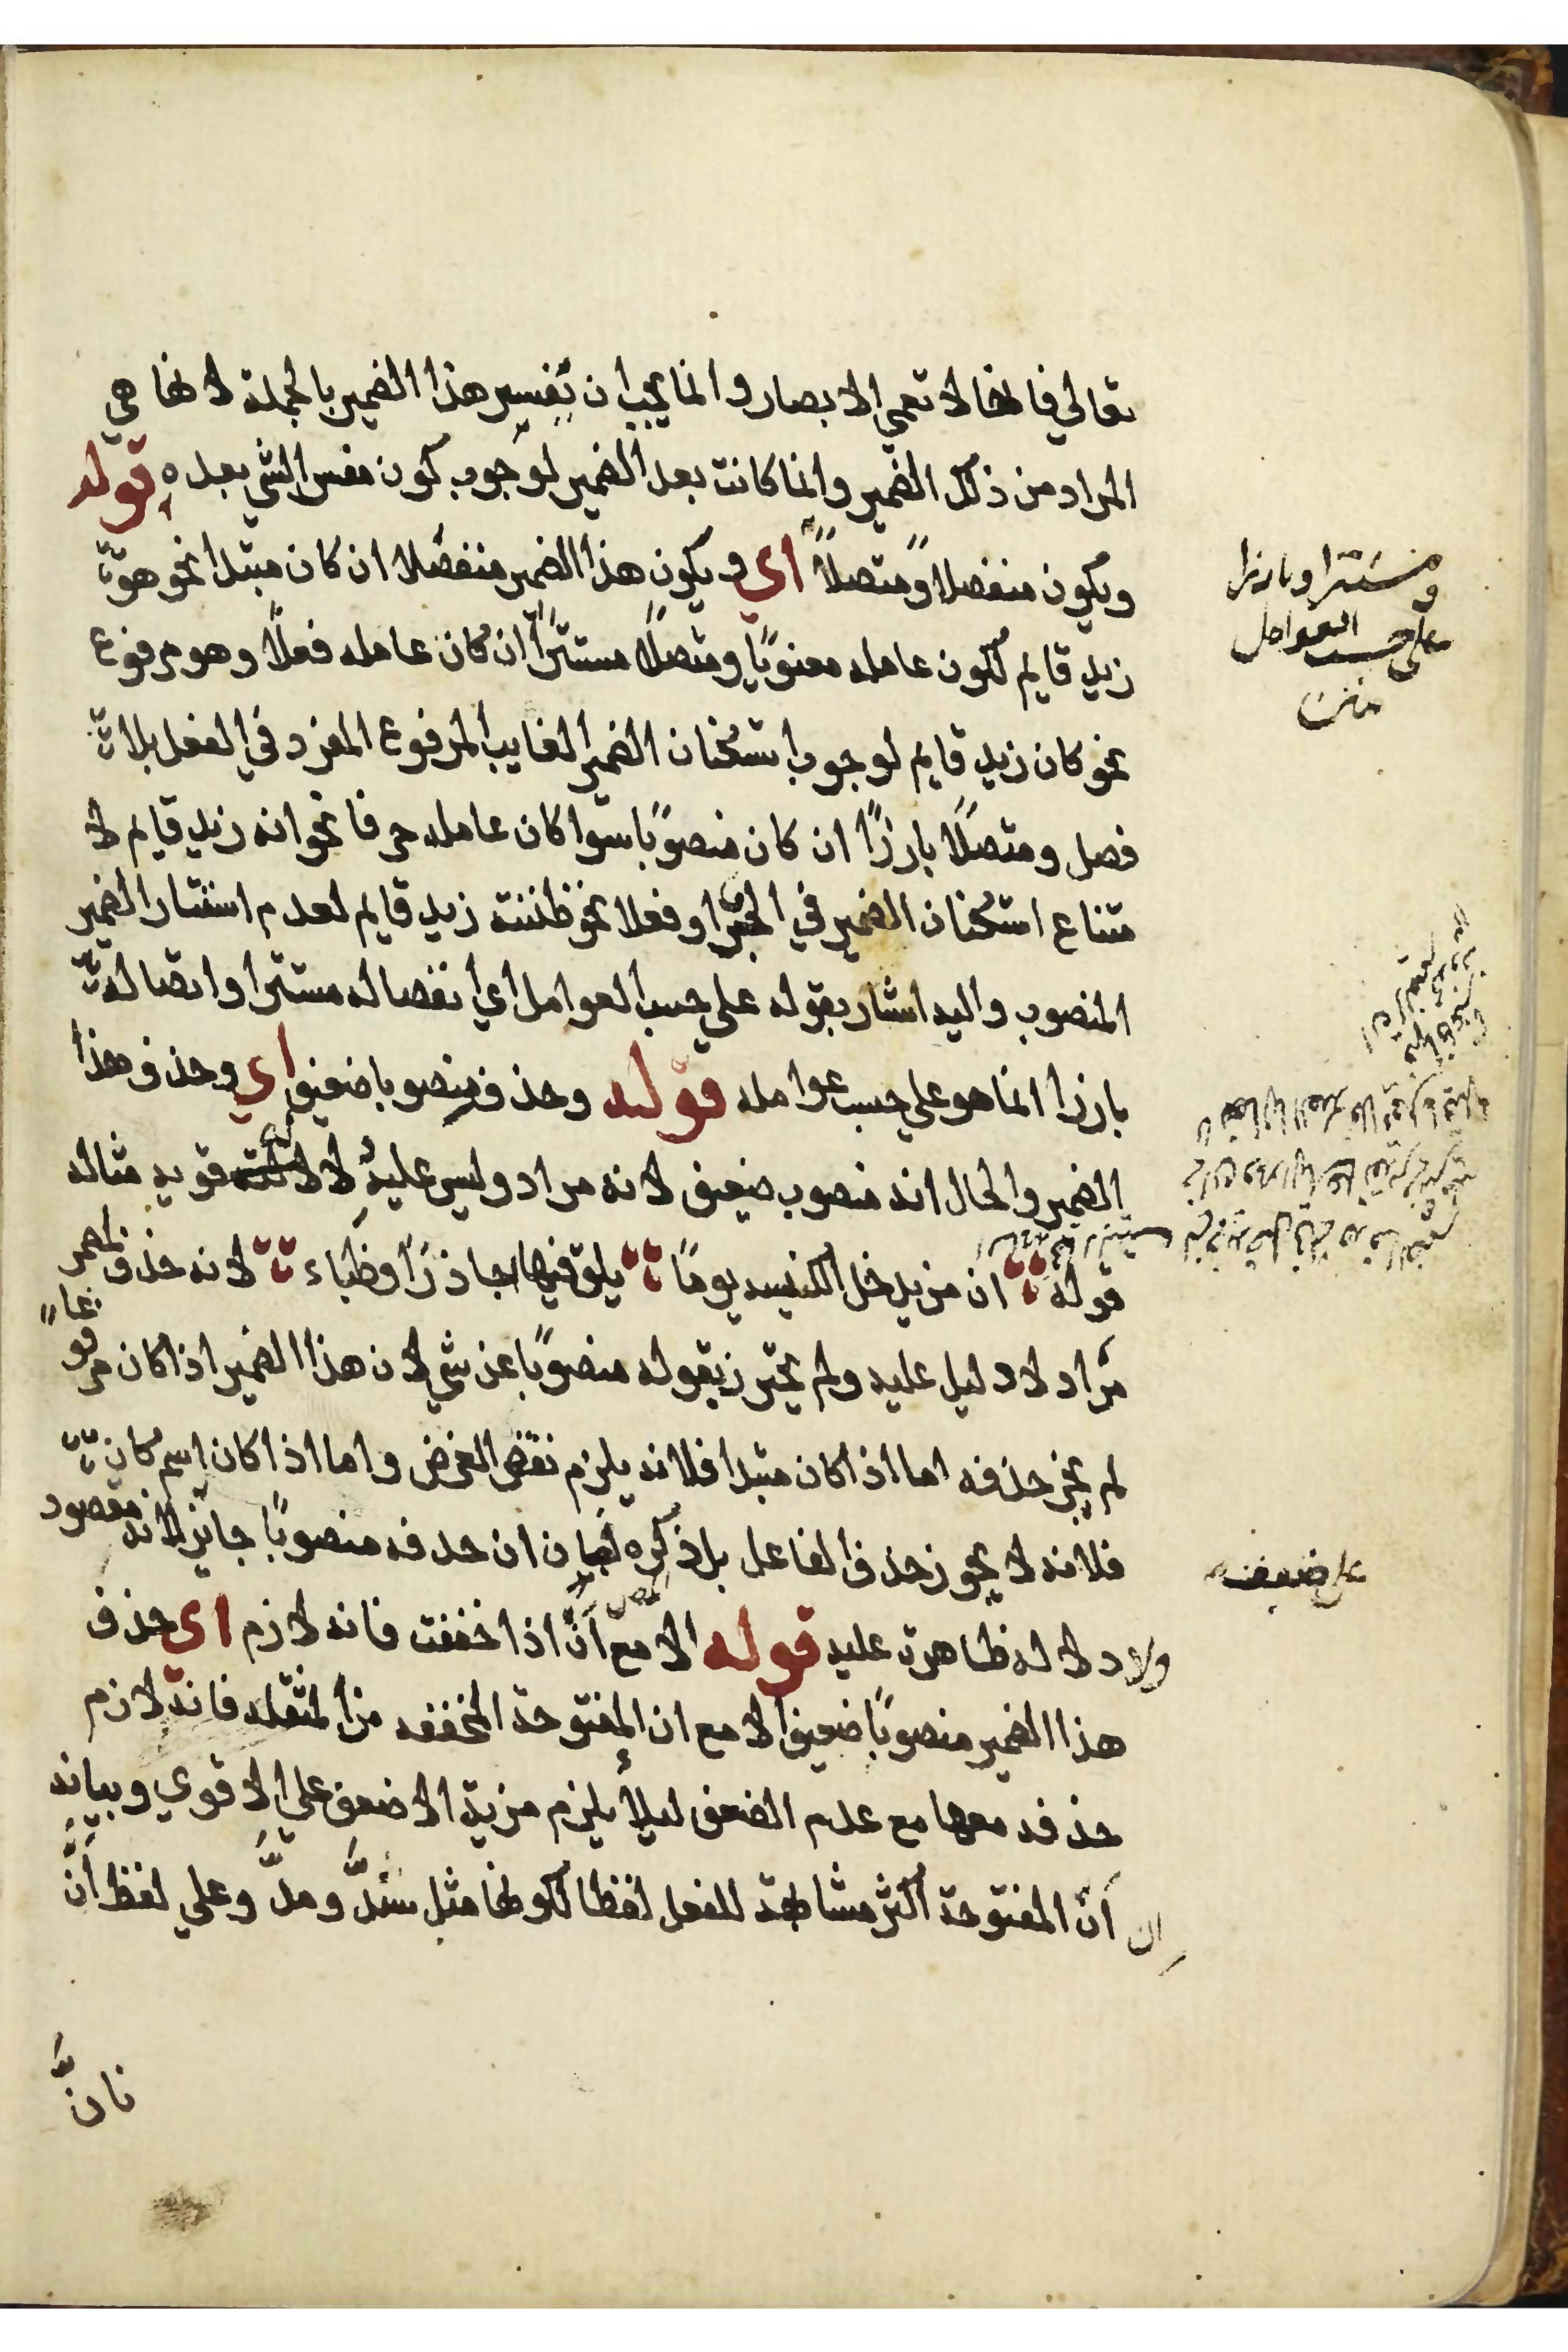 تعالي فانها لا تعمي الابصار وانما يجب ان تفسير هذا الضمير بالجملة لانها هي
المراد من ذلك الضمير وانما كانت بعد الضمير لوجوب كون مفسر الشي بعده قوله
ويكون منفصلا ومتصلاً اي ويكون هذا الضمير منفصلا ان كان مبتدا نحو هو
زيد قايم لكون عامله معنويًا ومتصلاً مستترًا ان كان عامله فعلاً وهو مرفوع
نحو كان زيد قايم لوجوب استكنان الضمير الغايب المرفوع المفرد في الفعل بلا
فصل ومتصلًا بارزًا ان كان منصوبًا سوا كان عامله حرفا نحو انه زيد قايم لا
متناع استكنان الضمير في الحرف او فعلا نحو ظننته زيد قايم لعدم استتار الضمير
المنصوب واليه اشار بقوله علي حسب العوامل اي انفصاله مستترا واتصاله
بارزا انما هو علي حسب عوامله قوله وحذفه منصوبا ضعيف اي وحذف هذا
الضمير والحال انه منصوب ضعيف لانه مراد وليس عليه دلالة قويه مثاله
قوله ان من يدخل الكنيسه يومًا يلق فيها جاذرًا وظباء لانه حذف الضمير
مراد لا دليل عليه ولم يحترز بقوله منصوبًا عن شي لان هذا الضمير اذا كان مرفوعاً
لم يجز حذفه اما اذا كان مبتدا فلانه يلزم نقض الغرض واما اذا كان اسم كان
فلانه لا يجوز حذف الفاعل بل ذكره لبيان ان حذفه منصوبًا جايز لانه مقصود
ولا دلاله ظاهرة عليه قوله الا مع أنّ اذا خففت فانه لازم اي حذف
هذا الضمير منصوبًا ضعيف الا مع ان المفتوحة المخففه من المثقله فانه لازم
حذفه معها مع عدم الضعف ليلا يلزم مزية الاضعف علي الاقوي وبيانه
ان أنّ المفتوحة اكثر مشابهة للفعل لفظا لكونها مثل شدَّ ومدَّ وعلي لفظ أنَّ
فانَّ
ومستترا وبارزا
على حسب العوامل
متن
على ضعيف